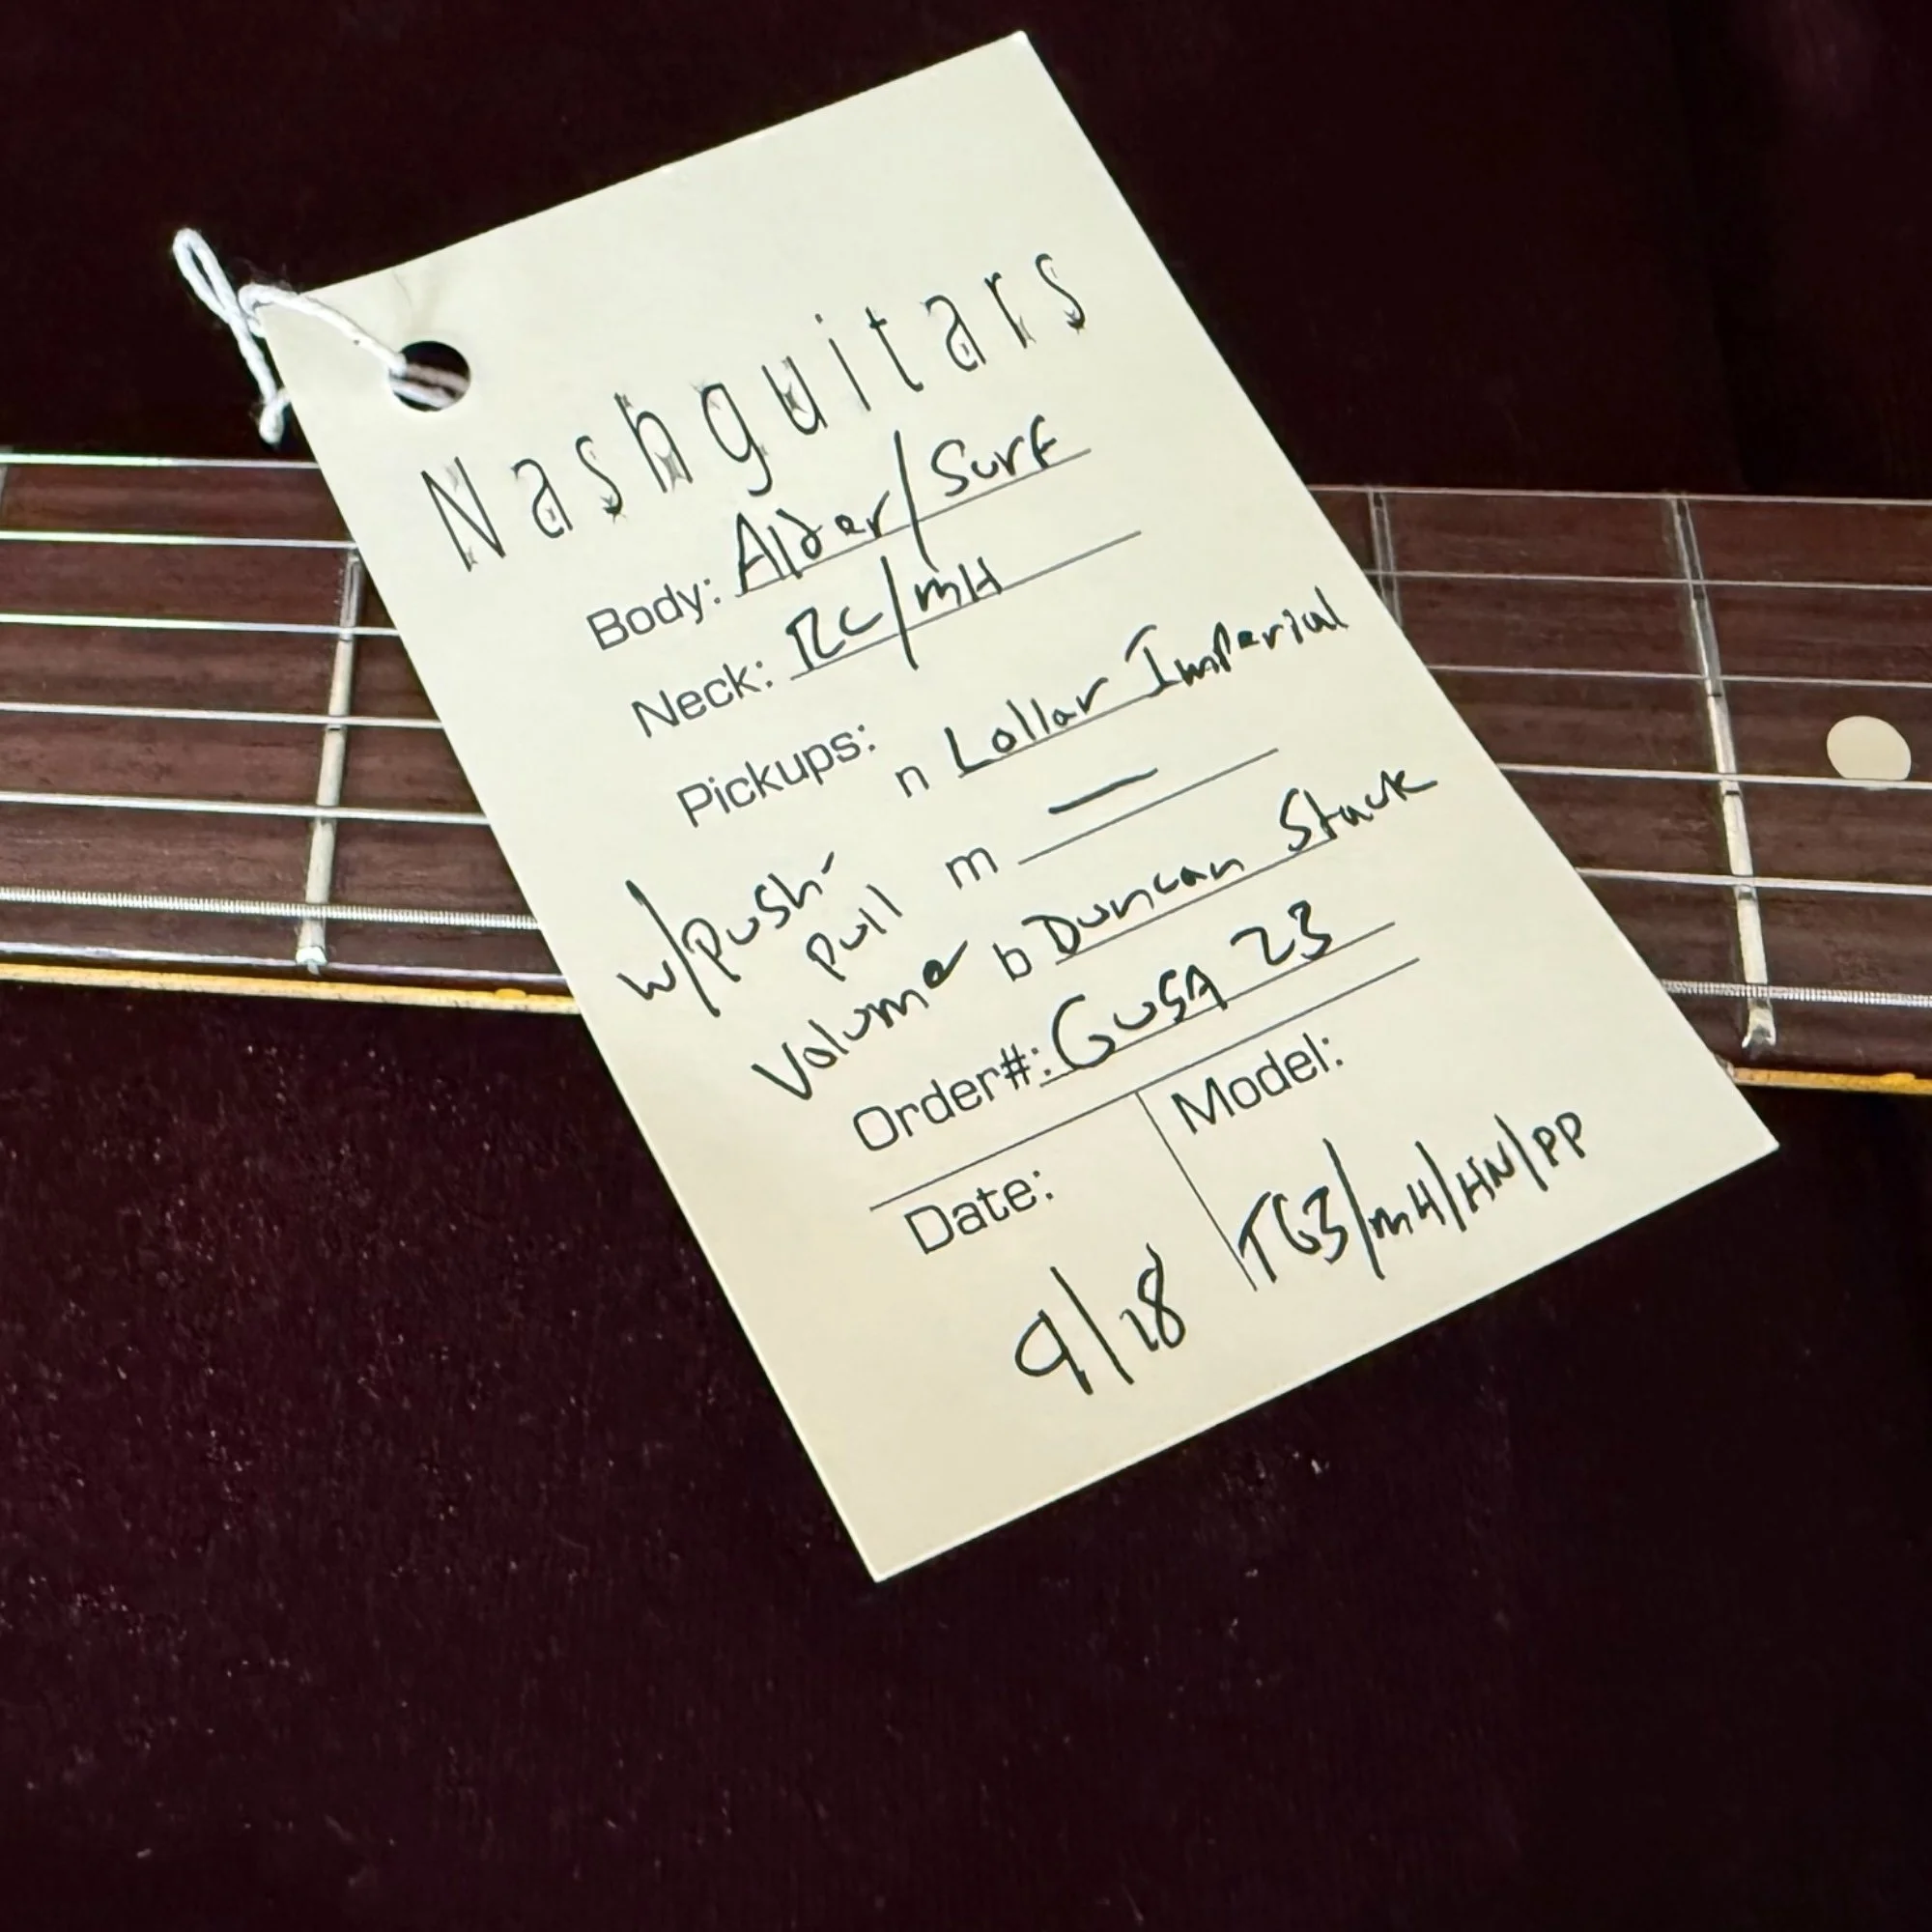 Nashguitars
Body: Alder/Surf
Neck: RC/mH
Pickups: n Lollar Imperial
m —
w/push-
pull
Volume b Duncan Stack
Order#: GUSA 23
Date: 9/18
Model: T63/mH/HN/PP